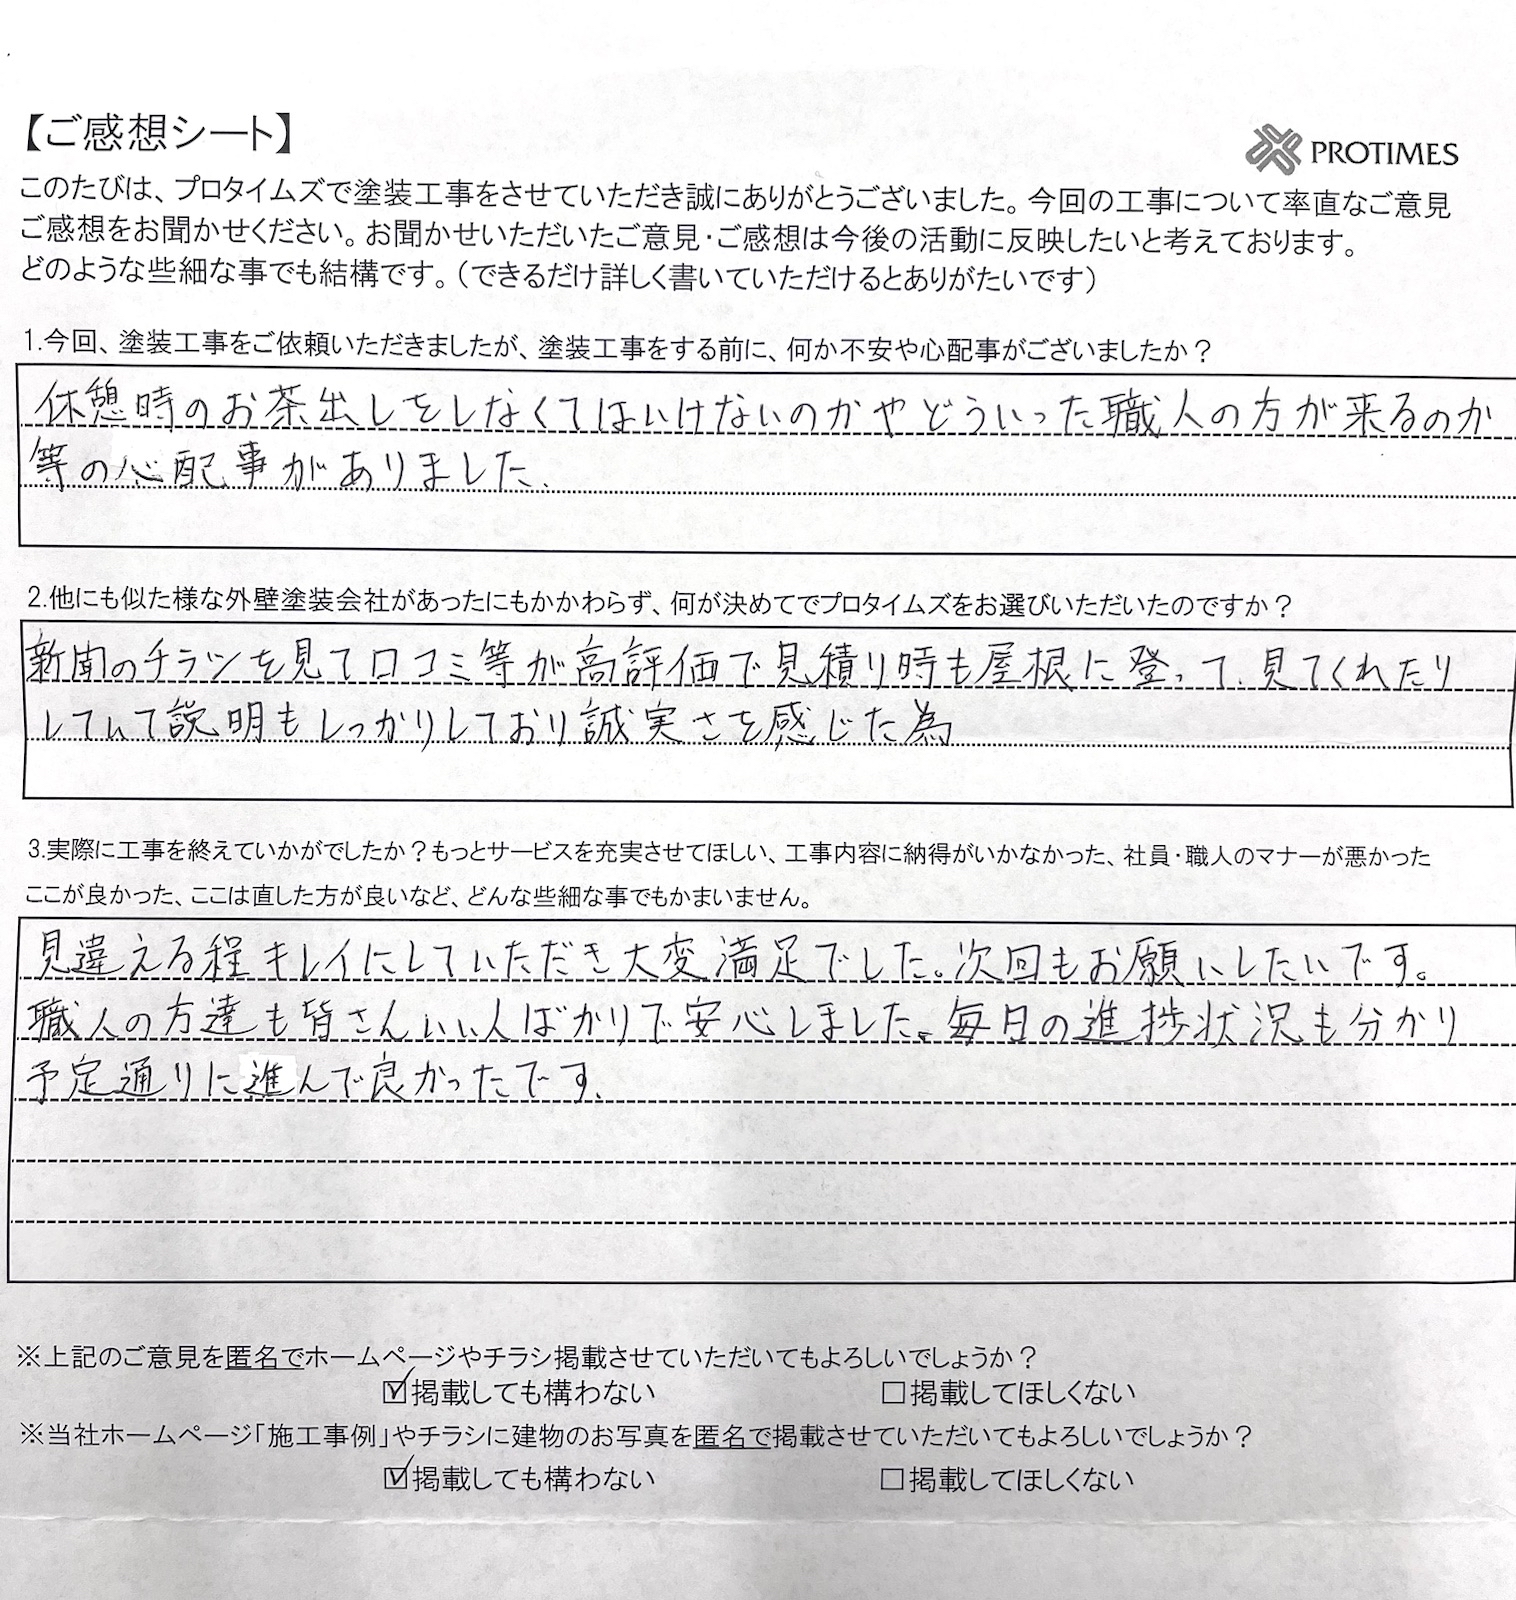 【ご感想シート】
PROTIMES
このたびは、プロタイムズで塗装工事をさせていただき誠にありがとうございました。今回の工事について率直なご意見
ご感想をお聞かせください。お聞かせいただいたご意見・ご感想は今後の活動に反映したいと考えております。
どのような些細な事でも結構です。（できるだけ詳しく書いていただけるとありがたいです）
1.今回、塗装工事をご依頼いただきましたが、塗装工事をする前に、何か不安や心配事がございましたか？
休憩時のお茶出しをしなくてはいけないのかやどういった職人の方が来るのか
等の心配事がありました。
2.他にも似た様な外壁塗装会社があったにもかかわらず、何が決めてでプロタイムズをお選びいただいたのですか？
新聞のチラシを見て口コミ等が高評価で見積り時も屋根に登って、見てくれたり
していて説明もしっかりしており誠実さを感じた為
3.実際に工事を終えていかがでしたか？もっとサービスを充実させてほしい、工事内容に納得がいかなかった、社員・職人のマナーが悪かった
ここが良かった、ここは直した方が良いなど、どんな些細な事でもかまいません。
見違える程キレイにしていただき大変満足でした。次回もお願いしたいです。
職人の方達も皆さんいい人ばかりで安心しました。毎日の進捗状況も分かり
予定通りに進んで良かったです。
※上記のご意見を匿名でホームページやチラシ掲載させていただいてもよろしいでしょうか？
☑掲載しても構わない □掲載してほしくない
※当社ホームページ「施工事例」やチラシに建物のお写真を匿名で掲載させていただいてもよろしいでしょうか？
☑掲載しても構わない □掲載してほしくない